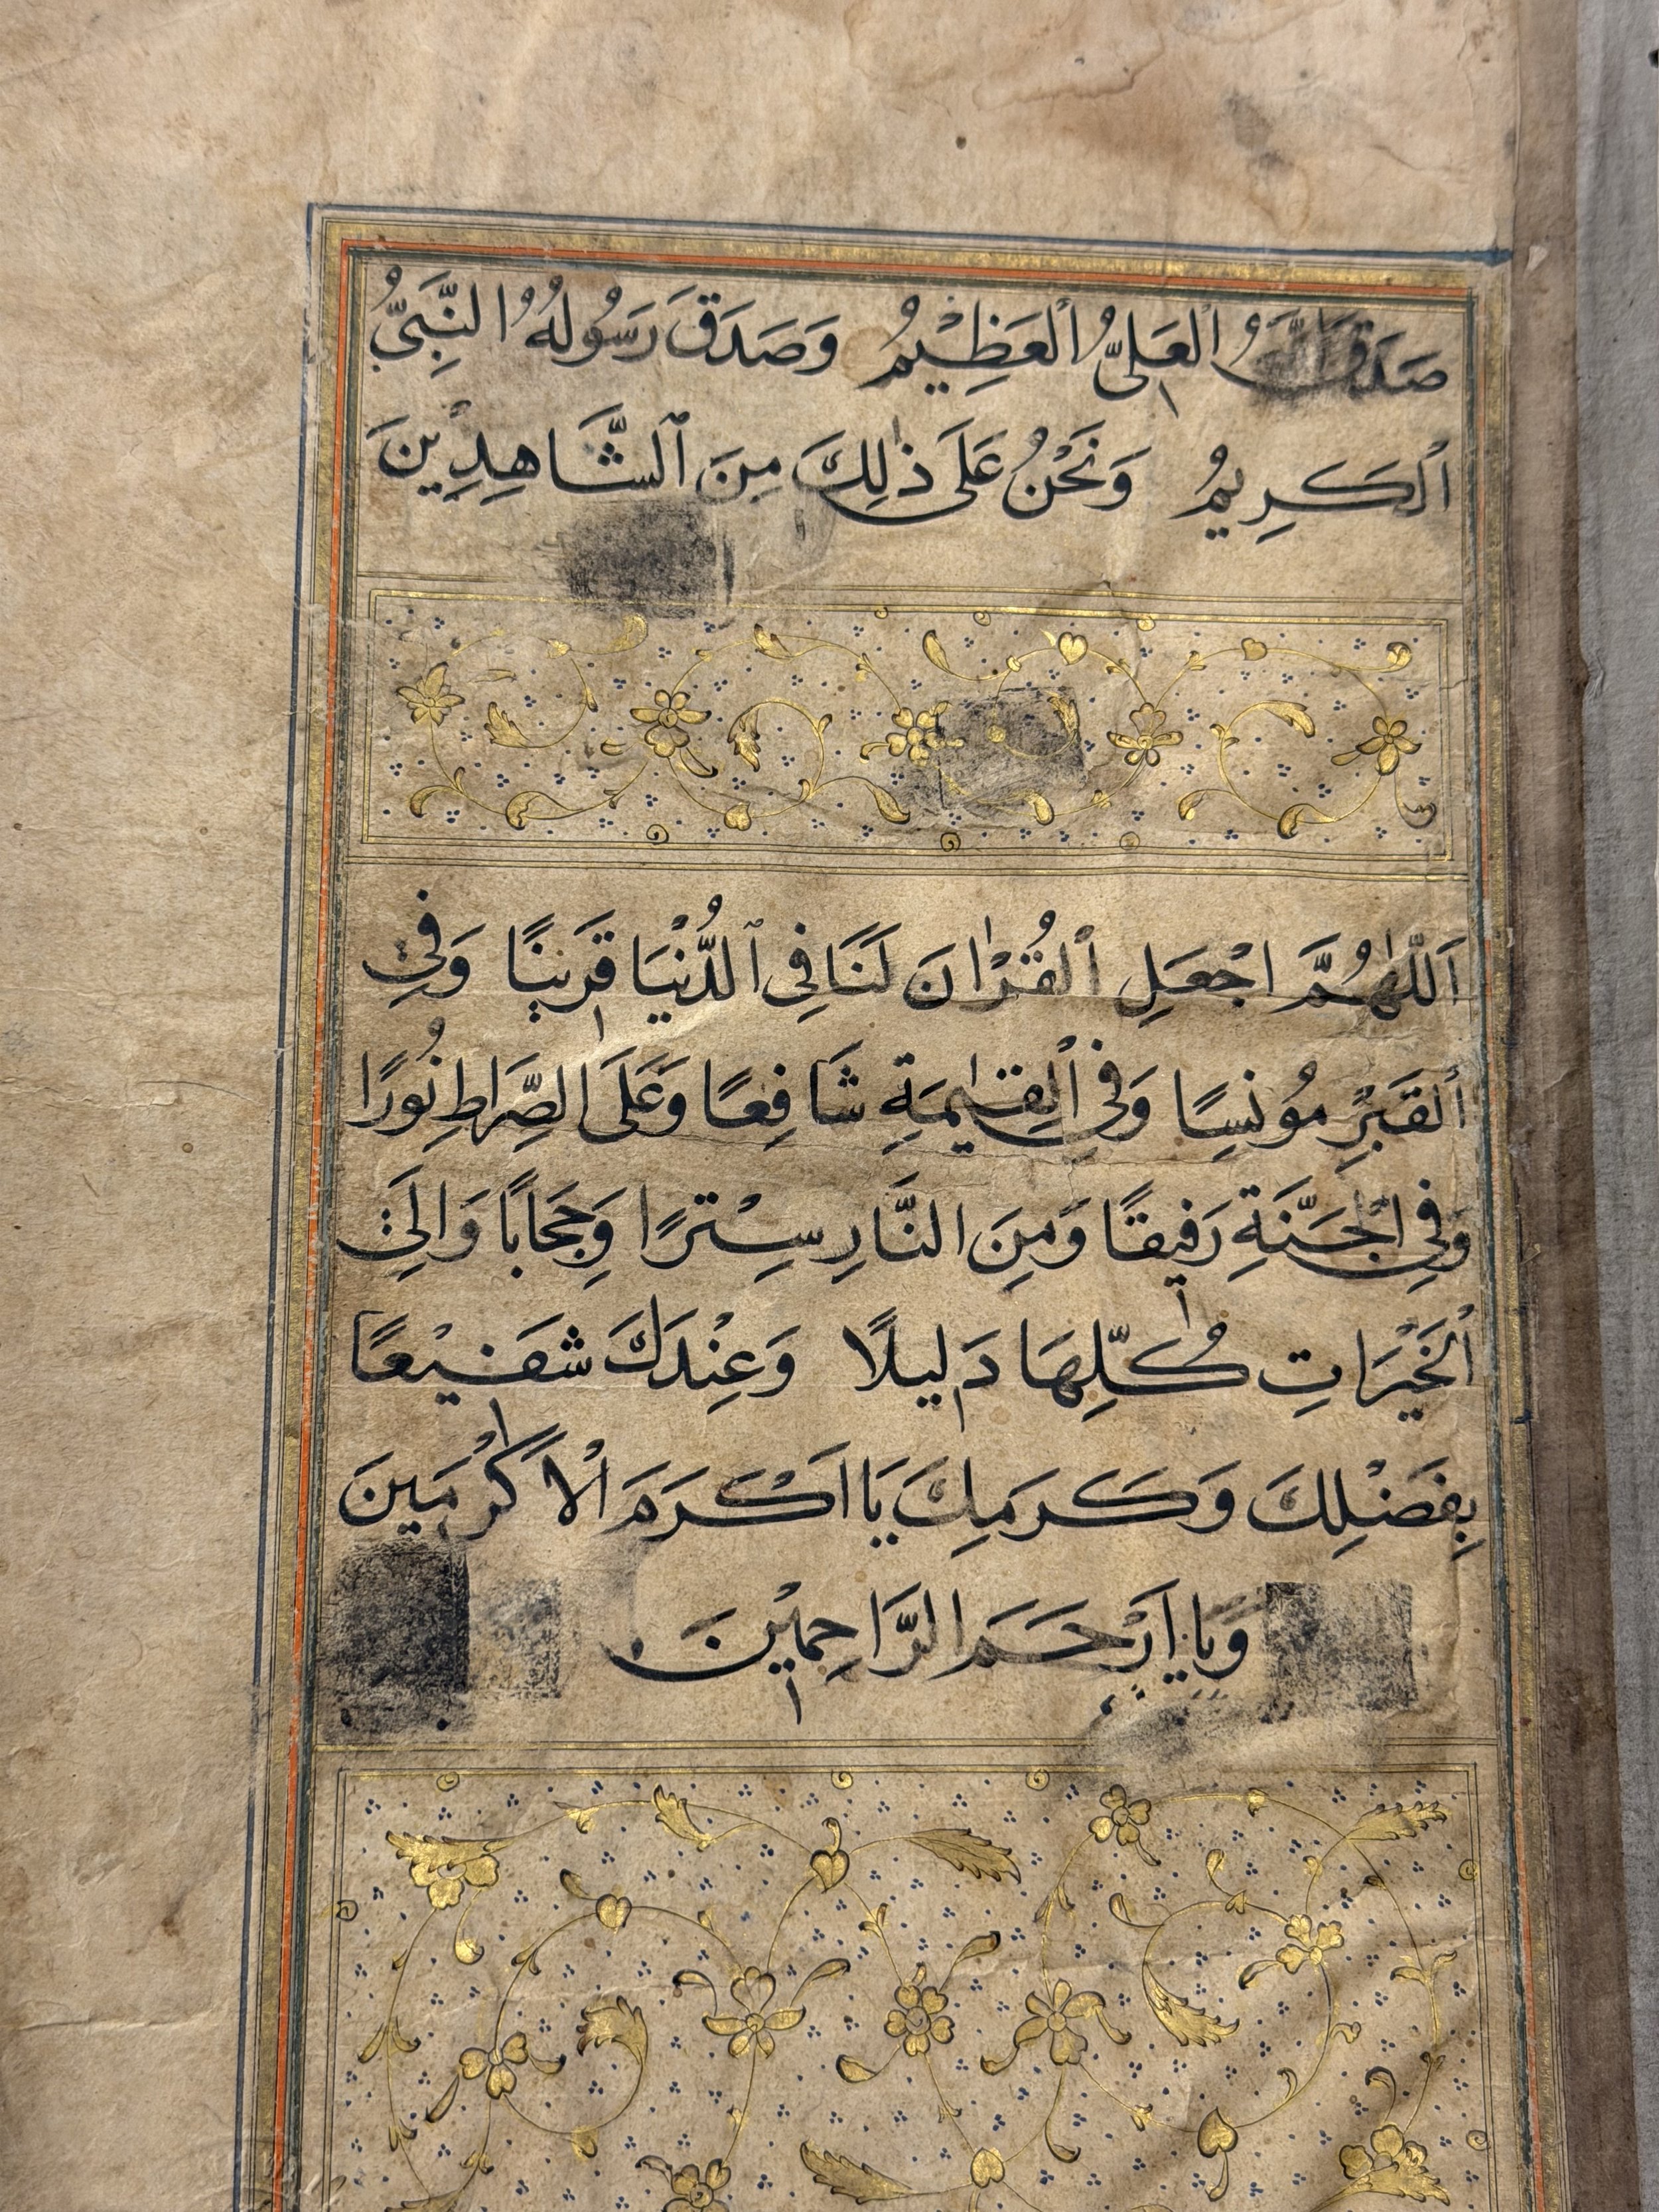 صَدَقَ اللَّهُ ٱلْعَلِىُّ ٱلْعَظِيْمُ وَصَدَقَ رَسُولُهُ النَّبِىُّ
ٱلْكَرِيمُ وَنَحْنُ عَلَى ذٰلِكَ مِنَ ٱلشَّاهِدِيْنَ
اَللّٰهُمَّ اجْعَلِ ٱلْقُرْاٰنَ لَنَا فِى ٱلدُّنْيَا قَرِينًا وَفِى
ٱلْقَبْرِ مُونِسًا وَفِى ٱلْقِيٰمَةِ شَافِعًا وَعَلَى الصِّرَاطِ نُورًا
وَفِى الْجَنَّةِ رَفِيقًا وَمِنَ النَّارِ سِتْرًا وَحِجَابًا وَالَى
ٱلْخَيْرَاتِ كُلِّهَا دَلِيلًا وَعِنْدَكَ شَفِيْعًا
بِفَضْلِكَ وَكَرَمِكَ يَا اَكْرَمَ الْاَكْرَمِينَ
وَيَا اَرْحَمَ الرَّاحِمِيْنَ